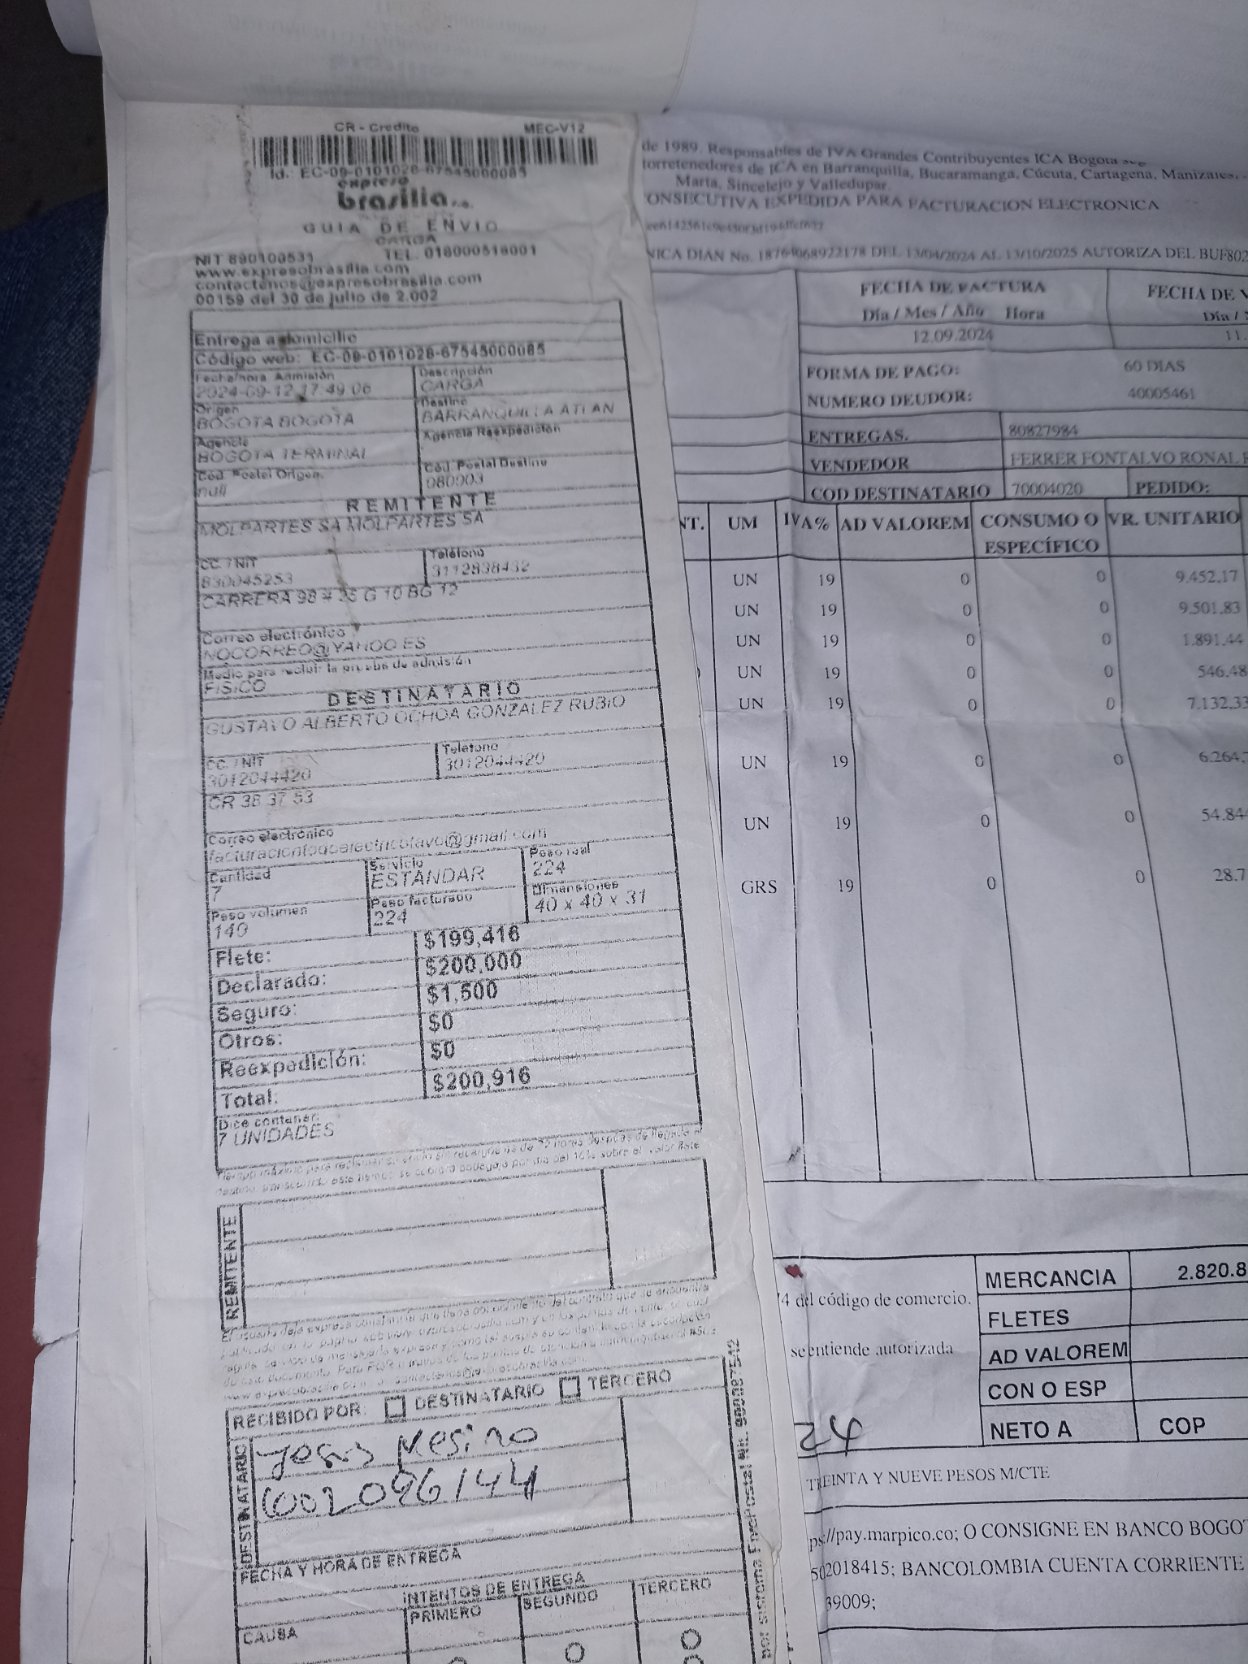 CR - Credito MEC-V12
Id.: EC-09-0101028-67545000085
expreso
brasilia s.a.
GUIA DE ENVIO
CARGA
NIT 890100531 TEL. 018000518001
www.expresobrasilia.com
contactenos@expresobrasilia.com
00159 del 30 de julio de 2.002
Entrega a domicilio
Código web: EC-09-0101028-67545000085
Fecha/hora Admisión Descripción
2024-09-12 17:49:06 CARGA
Origen Destino
BOGOTA BOGOTA BARRANQUILLA ATLAN
Agencia Agencia Reexpedición
BOGOTA TERMINAL
Cód. Postal Origen. Cód. Postal Destino
null 080003
REMITENTE
MOLPARTES SA MOLPARTES SA
CC. / NIT Teléfono
830045253 3112838432
CARRERA 98 # 25 G 10 BG 12
Correo electrónico
NOCORREO@YAHOO.ES
Medio para recibir la prueba de admisión
FISICO
DESTINATARIO
GUSTAVO ALBERTO OCHOA GONZALEZ RUBIO
CC. / NIT Teléfono
3012044420 3012044420
CR 38 37 53
Correo electrónico
Cantidad Servicio Peso real
7 ESTANDAR 224
Peso volumen Peso facturado Dimensiones
149 224 40 x 40 x 31
Flete: $199,416
Declarado: $200,000
Seguro: $1,500
Otros: $0
Reexpedición: $0
Total: $200,916
Dice contener:
7 UNIDADES
REMITENTE
RECIBIDO POR: DESTINATARIO TERCERO
DESTINATARIO
Jesus Mesino
1002096144
FECHA Y HORA DE ENTREGA
INTENTOS DE ENTREGA
CAUSA PRIMERO SEGUNDO TERCERO
de 1989. Responsables de IVA Grandes Contribuyentes ICA Bogota
torretenedores de ICA en Barranquilla, Bucaramanga, Cúcuta, Cartagena, Manizales,
Marta, Sincelejo y Valledupar.
ONSECUTIVA EXPEDIDA PARA FACTURACION ELECTRONICA
NICA DIAN No. 18764068922178 DEL 13/04/2024 AL 13/10/2025 AUTORIZA DEL BUF802
FECHA DE FACTURA FECHA DE V
Día / Mes / Año Hora Día /
12.09.2024 11.
FORMA DE PAGO: 60 DIAS
NUMERO DEUDOR: 40005461
ENTREGAS. 80827984
VENDEDOR FERRER FONTALVO RONAL
COD DESTINATARIO 70004020 PEDIDO:
NT. UM IVA% AD VALOREM CONSUMO O ESPECÍFICO VR. UNITARIO
UN 19 0 0 9.452,17
UN 19 0 0 9.501,83
UN 19 0 0 1.891,44
UN 19 0 0 546,48
UN 19 0 0 7.132,33
UN 19 0 0 6.264,
UN 19 0 0 54.84
GRS 19 0 0 28.7
4 del código de comercio.
se entiende autorizada
MERCANCIA 2.820.8
FLETES
AD VALOREM
CON O ESP
NETO A COP
24
TREINTA Y NUEVE PESOS M/CTE
ps://pay.marpico.co; O CONSIGNE EN BANCO BOGOT
502018415; BANCOLOMBIA CUENTA CORRIENTE
39009;